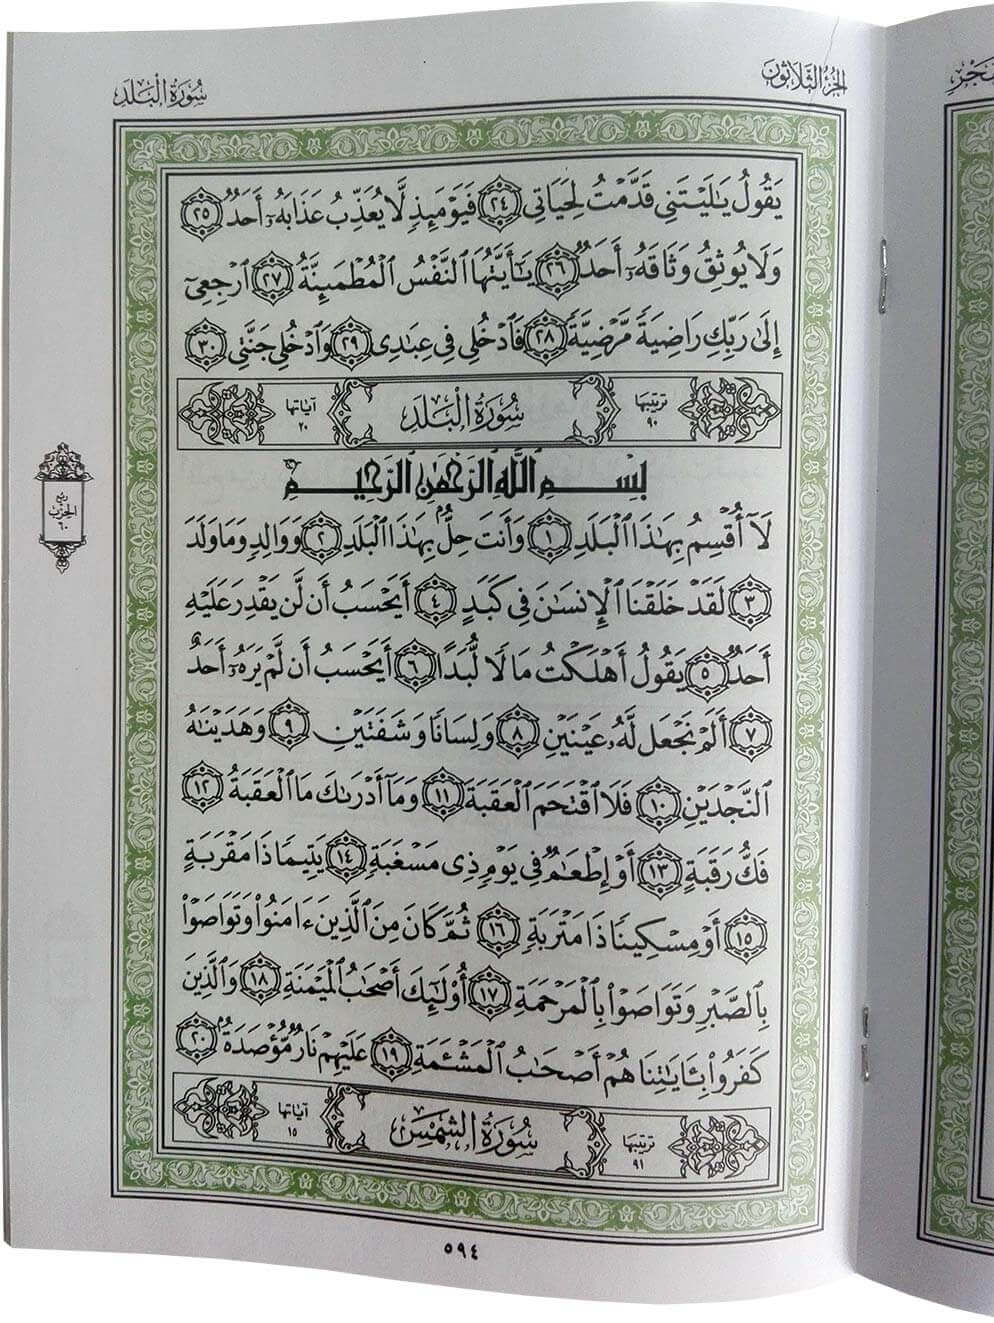 سُورَةُ الْبَلَدِ
الجُزْءُ الثَّلَاثُونَ
يَقُولُ يَٰلَيْتَنِى قَدَّمْتُ لِحَيَاتِى ٢٤ فَيَوْمَئِذٍ لَّا يُعَذِّبُ عَذَابَهُۥٓ أَحَدٌ ٢٥
وَلَا يُوثِقُ وَثَاقَهُۥٓ أَحَدٌ ٢٦ يَٰٓأَيَّتُهَا ٱلنَّفْسُ ٱلْمُطْمَئِنَّةُ ٢٧ ٱرْجِعِىٓ
إِلَىٰ رَبِّكِ رَاضِيَةً مَّرْضِيَّةً ٢٨ فَٱدْخُلِى فِى عِبَٰدِى ٢٩ وَٱدْخُلِى جَنَّتِى ٣٠
ترتيبها ٩٠ سُورَةُ الْبَلَدِ آياتها ٢٠
بِسْمِ ٱللَّهِ ٱلرَّحْمَٰنِ ٱلرَّحِيمِ
لَآ أُقْسِمُ بِهَٰذَا ٱلْبَلَدِ ١ وَأَنتَ حِلٌّۢ بِهَٰذَا ٱلْبَلَدِ ٢ وَوَالِدٍ وَمَا وَلَدَ
٣ لَقَدْ خَلَقْنَا ٱلْإِنسَٰنَ فِى كَبَدٍ ٤ أَيَحْسَبُ أَن لَّن يَقْدِرَ عَلَيْهِ
أَحَدٌ ٥ يَقُولُ أَهْلَكْتُ مَالًا لُّبَدًا ٦ أَيَحْسَبُ أَن لَّمْ يَرَهُۥٓ أَحَدٌ
٧ أَلَمْ نَجْعَل لَّهُۥ عَيْنَيْنِ ٨ وَلِسَانًا وَشَفَتَيْنِ ٩ وَهَدَيْنَٰهُ
ٱلنَّجْدَيْنِ ١٠ فَلَا ٱقْتَحَمَ ٱلْعَقَبَةَ ١١ وَمَآ أَدْرَىٰكَ مَا ٱلْعَقَبَةُ ١٢
فَكُّ رَقَبَةٍ ١٣ أَوْ إِطْعَٰمٌ فِى يَوْمٍ ذِى مَسْغَبَةٍ ١٤ يَتِيمًا ذَا مَقْرَبَةٍ
١٥ أَوْ مِسْكِينًا ذَا مَتْرَبَةٍ ١٦ ثُمَّ كَانَ مِنَ ٱلَّذِينَ ءَامَنُوا۟ وَتَوَاصَوْا۟
بِٱلصَّبْرِ وَتَوَاصَوْا۟ بِٱلْمَرْحَمَةِ ١٧ أُو۟لَٰٓئِكَ أَصْحَٰبُ ٱلْمَيْمَنَةِ ١٨ وَٱلَّذِينَ
كَفَرُوا۟ بِـَٔايَٰتِنَا هُمْ أَصْحَٰبُ ٱلْمَشْـَٔمَةِ ١٩ عَلَيْهِمْ نَارٌ مُّؤْصَدَةٌۢ ٢٠
ترتيبها ٩١ سُورَةُ الشَّمْسِ آياتها ١٥
ربع
الحزب
٦٠
٥٩٤